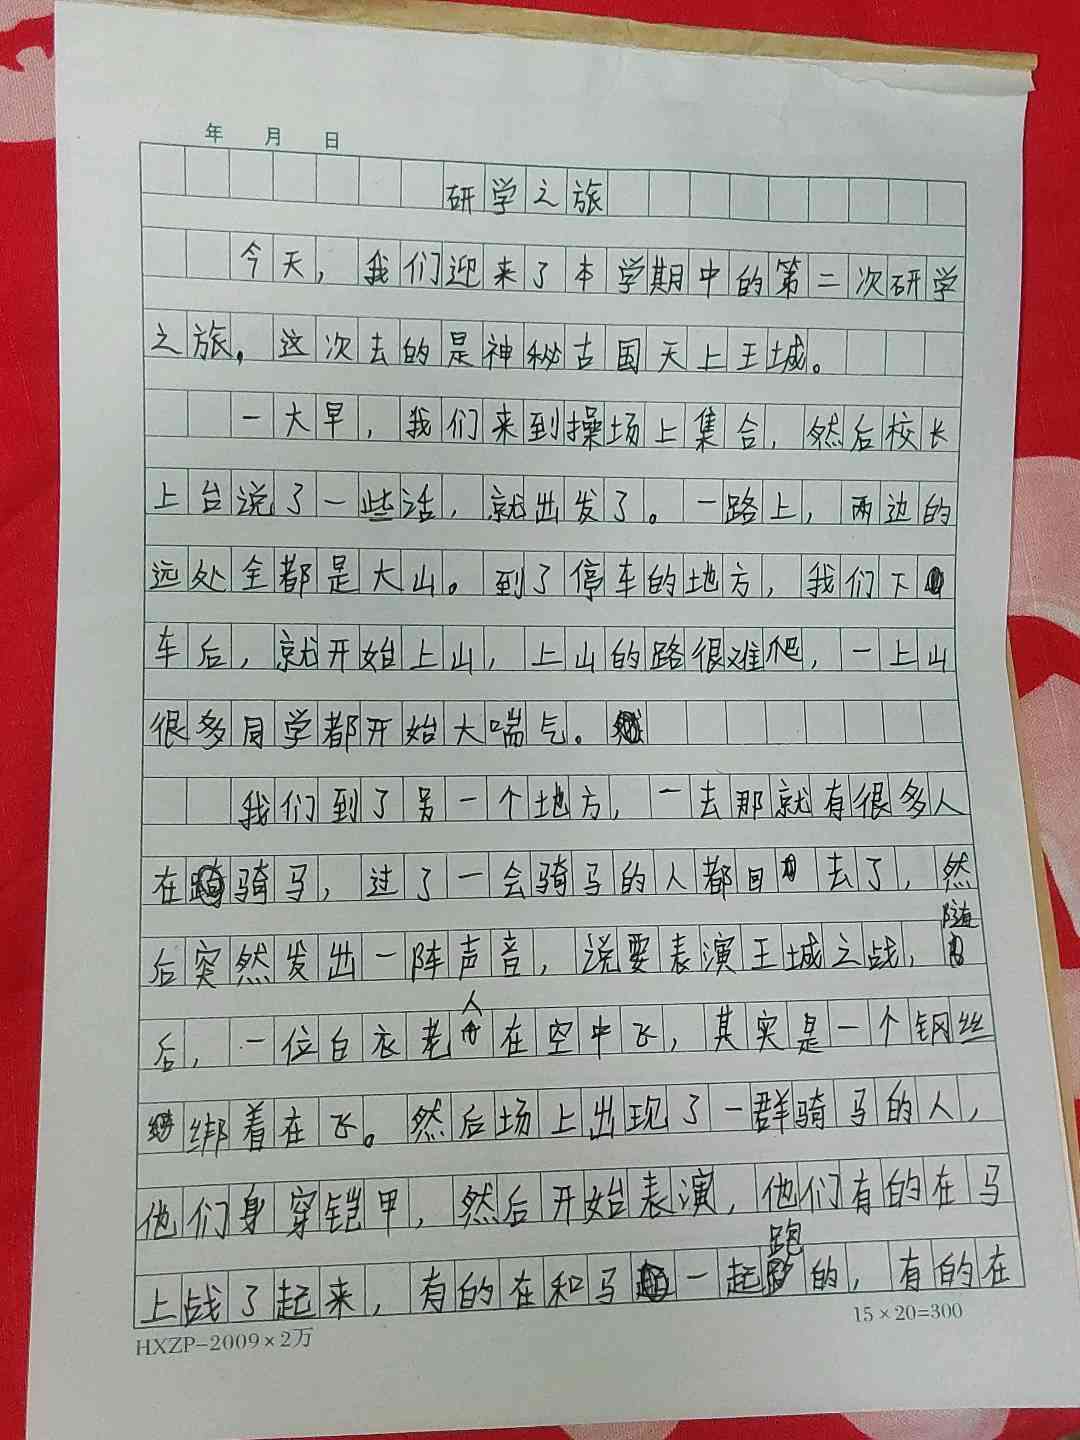 年 月 日
研学之旅
今天，我们迎来了本学期中的第二次研学
之旅，这次去的是神秘古国天上王城。
一大早，我们来到操场上集合，然后校长
上台说了一些话，就出发了。一路上，两边的
远处全都是大山。到了停车的地方，我们下
车后，就开始上山，上山的路很难爬，一上山
很多同学都开始大喘气。
我们到了另一个地方，一去那就有很多人
在骑马，过了一会骑马的人都回去了，然
后突然发出一阵声音，说要表演王城之战，随
后，一位白衣老人在空中飞，其实是一个钢丝
绑着在飞。然后场上出现了一群骑马的人，
他们身穿铠甲，然后开始表演，他们有的在马
上战了起来，有的在和马一起跑的，有的在
HXZP-2009×2万
15×20=300